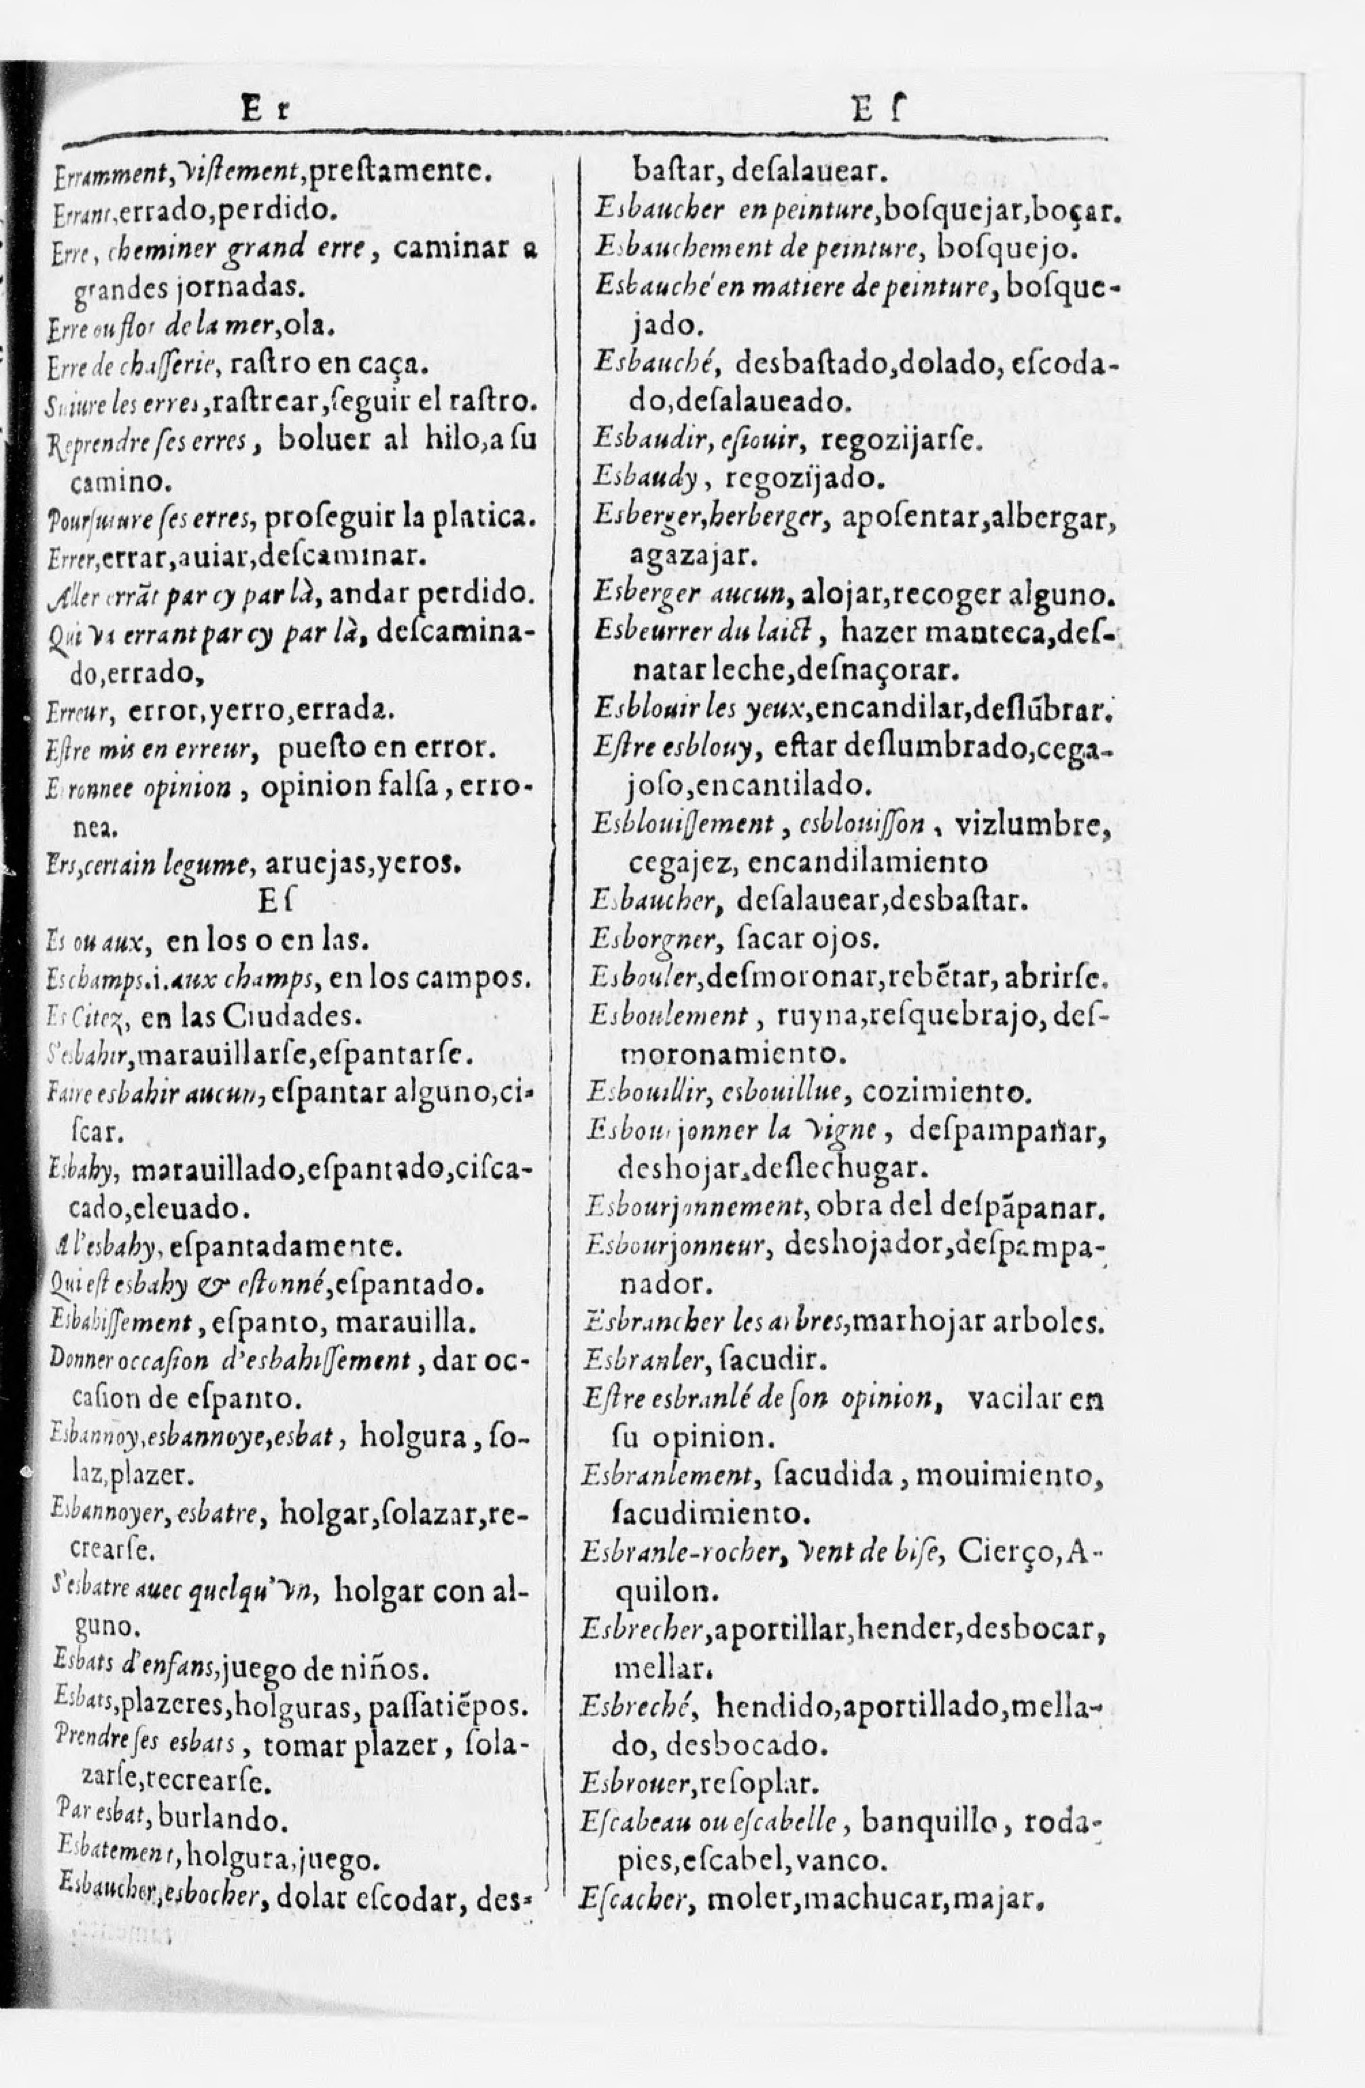 E r
Erramment, vistement,preſtamente.
Errant,errado,perdido.
Erre, cheminer grand erre, caminar a
grandes jornadas.
Erre ou flot de la mer,ola.
Erre de chaſſerie, raſtro en caça.
Suiure les erres,raſtrear,ſeguir el raſtro.
Reprendre ſes erres, boluer al hilo,a ſu
camino.
Pourſuiure ſes erres, proſeguir la platica.
Errer,errar,auiar,deſcaminar.
Aller errãt par cy par là, andar perdido.
Qui va errant par cy par là, deſcamina-
do,errado,
Erreur, error,yerro,errada.
Eſtre mis en erreur, pueſto en error.
Erronnee opinion, opinion falſa, erro-
nea.
Ers,certain legume, aruejas,yeros.
Eſ
Es ou aux, en los o en las.
Es champs.i.aux champs, en los campos.
Es Citez, en las Ciudades.
S'esbahir,marauillarſe,eſpantarſe.
Faire esbahir aucun, eſpantar alguno,ci-
ſcar.
Esbahy, marauillado,eſpantado,ciſca-
cado,eleuado.
A l'esbahy, eſpantadamente.
Qui eſt esbahy & eſtonné,eſpantado.
Esbahiſſement, eſpanto, marauilla.
Donner occaſion d'esbahiſſement, dar oc-
caſion de eſpanto.
Esbannoy,esbannoye,esbat, holgura, ſo-
laz,plazer.
Esbannoyer,esbatre, holgar,ſolazar,re-
crearſe.
S'esbatre auec quelqu'vn, holgar con al-
guno.
Esbats d'enfans,juego de niños.
Esbats,plazeres,holguras, paſſatiẽpos.
Prendre ſes esbats, tomar plazer, ſola-
zarſe,recrearſe.
Par esbat, burlando.
Esbatement,holgura,juego.
Esbaucher,esbocher, dolar eſcodar, des-
E ſ
baſtar, deſalauear.
Esbaucher en peinture,boſquejar,boçar.
Esbauchement de peinture, boſquejo.
Esbauché en matiere de peinture, boſque-
jado.
Esbauché, desbaſtado,dolado, eſcoda-
do,deſalaueado.
Esbaudir, eſiouir, regozijarſe.
Esbaudy, regozijado.
Esberger,herberger, apoſentar,albergar,
agazajar.
Esberger aucun, alojar,recoger alguno.
Esbeurrer du laict, hazer manteca,deſ-
natar leche,deſnaçorar.
Esblouir les yeux,encandilar,deſlũbrar.
Eſtre esblouy, eſtar deſlumbrado,cega-
joſo,encantilado.
Esblouiſſement, esblouiſſon, vizlumbre,
cegajez, encandilamiento
Esbaucher, deſalauear,desbaſtar.
Esborgner, ſacar ojos.
Esbouler,deſmoronar,rebẽtar, abrirſe.
Esboulement, ruyna,reſquebrajo, deſ-
moronamiento.
Esbouillir, esbouillue, cozimiento.
Esbourjonner la vigne, deſpampanar,
deshojar,deſlechugar.
Esbourjonnement, obra del deſpãpanar.
Esbourjonneur, deshojador,deſpampa-
nador.
Esbrancher les arbres,marhojar arboles.
Esbranler, ſacudir.
Eſtre esbranlé de ſon opinion, vacilar en
ſu opinion.
Esbranlement, ſacudida, mouimiento,
ſacudimiento.
Esbranle-rocher, vent de biſe, Cierço, A-
quilon.
Esbrecher,aportillar,hender,desbocar,
mellar.
Esbreché, hendido,aportillado,mella-
do, desbocado.
Esbrouer,reſoplar.
Eſcabeau ou eſcabelle, banquillo, roda-
pies,eſcabel,vanco.
Eſcacher, moler,machucar,majar.